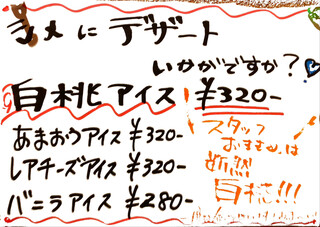 きメにデザート
いかがですか？
白桃アイス ¥320-
あまおうアイス ¥320-
レアチーズアイス ¥320-
バニラアイス ¥280-
スタッフ
おすすめは
断然
白桃!!!